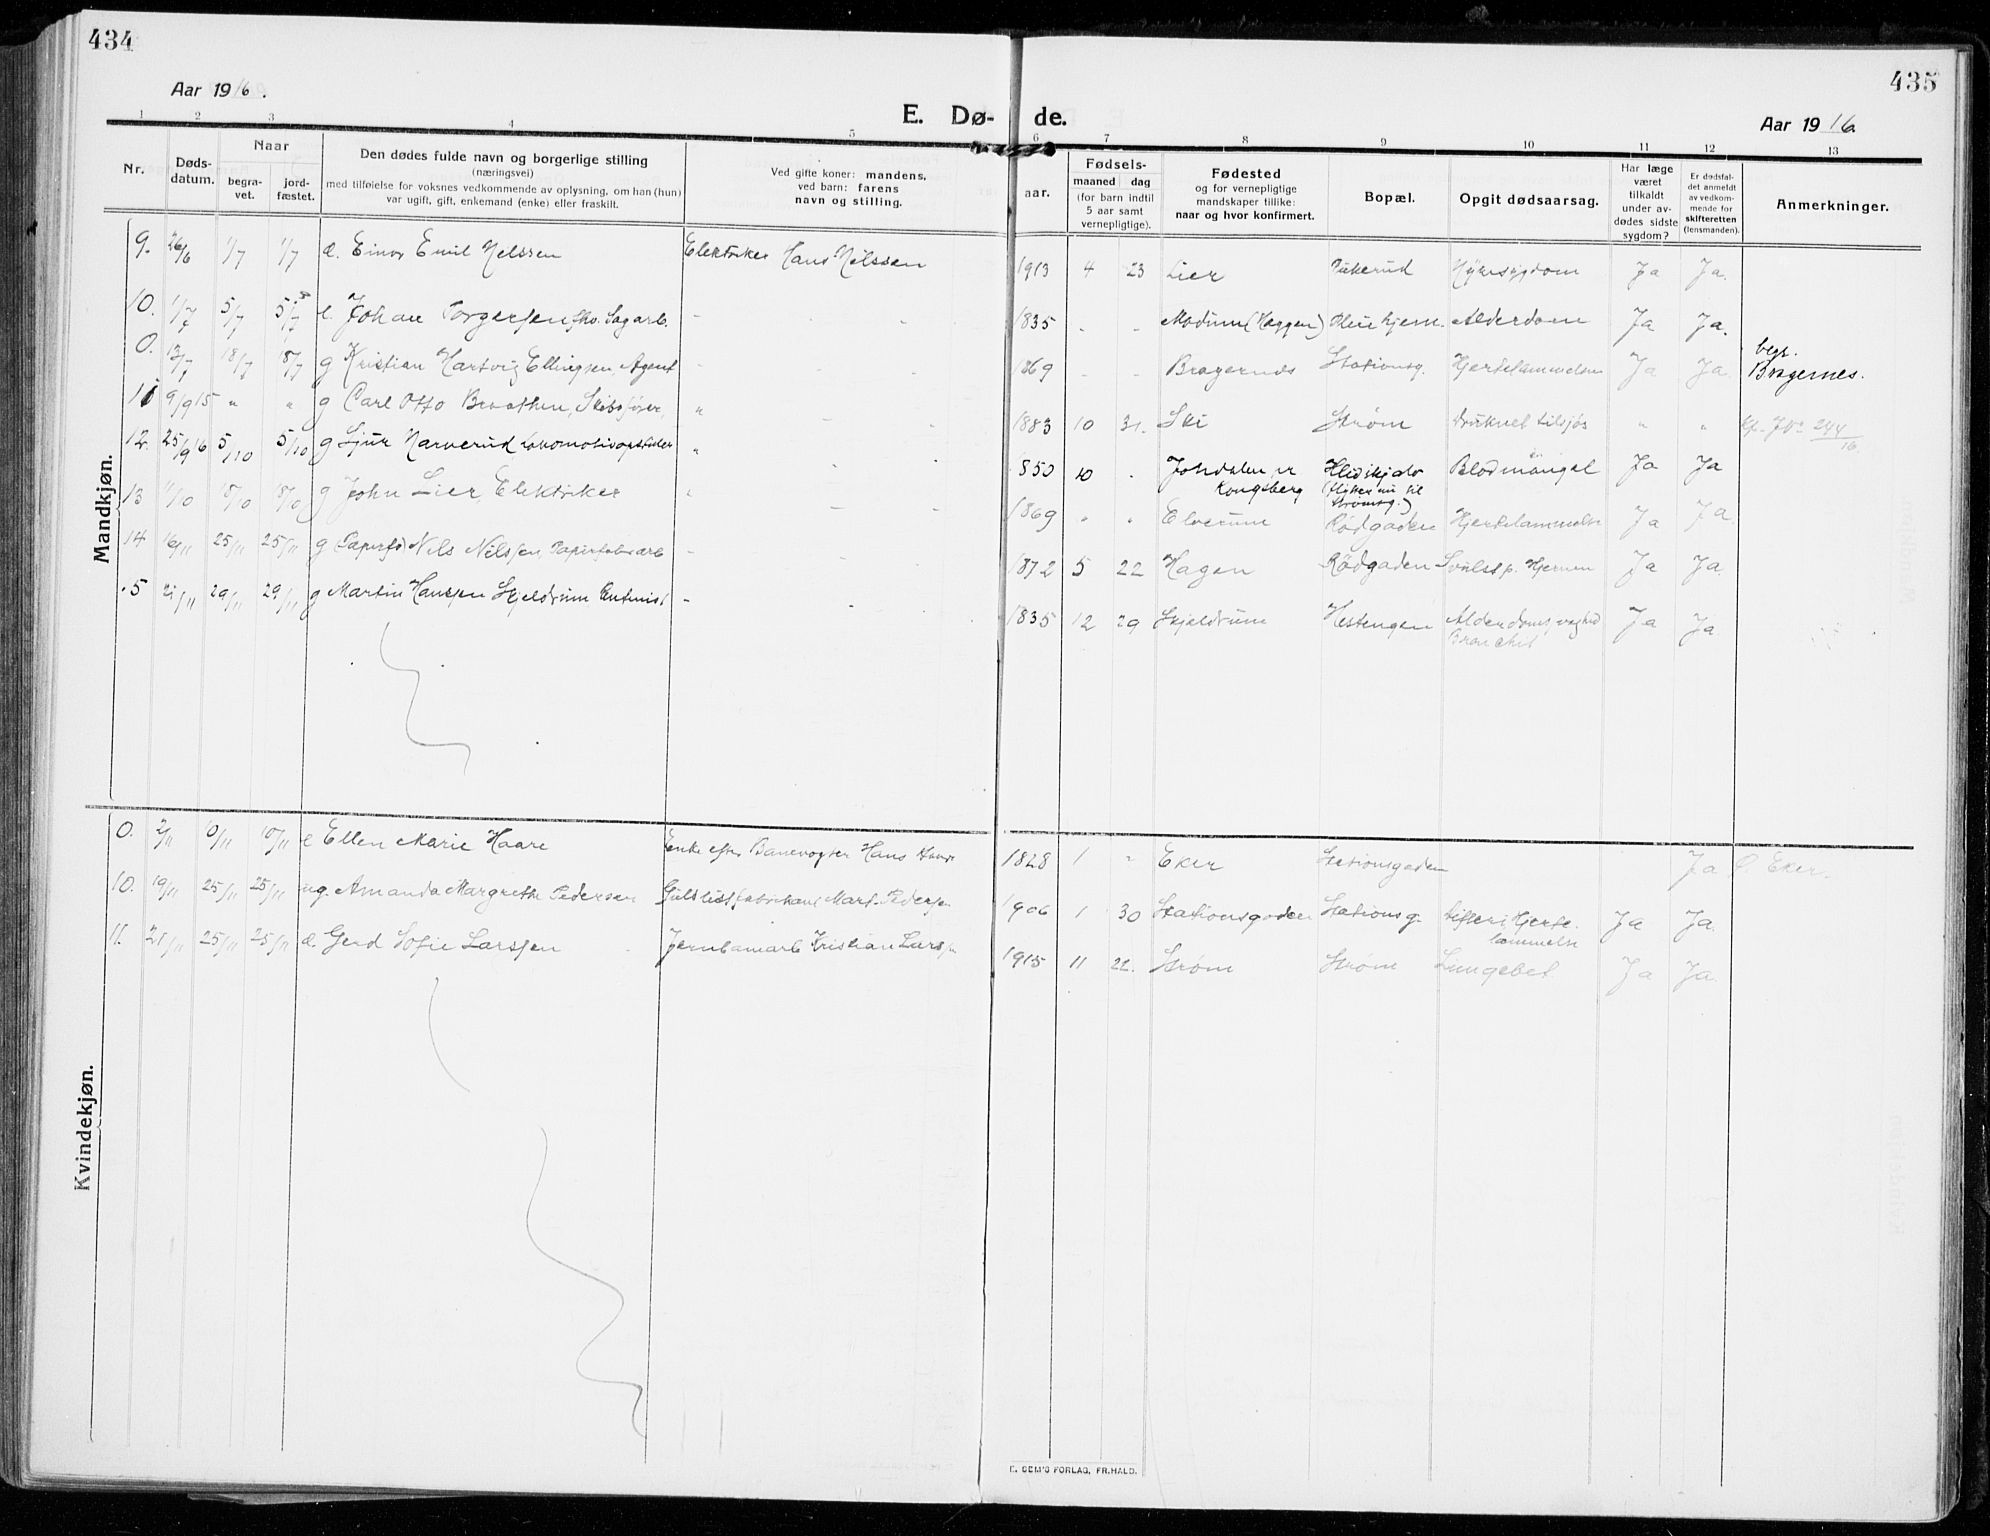 434
435
Aar 1916.
E. Dø- de.
Aar 1916.
1 2 3 4 5 6 7 8 9 10 11 12 13
Nr.
Døds-
datum.
Naar
begra-
vet.
jord-
fæstet.
Den dødes fulde navn og borgerlige stilling
(næringsvei)
med tilføielse for voksnes vedkommende av oplysning, om han (hun)
var ugift, gift, enkemand (enke) eller fraskilt.
Ved gifte koner: mandens,
ved barn: farens
navn og stilling.
aar.
Fødsels-
maaned dag
(for barn indtil
5 aar samt
vernepligtige).
Fødested
og for vernepligtige
mandskaper tillike:
naar og hvor konfirmert.
Bopæl.
Opgit dødsaarsag.
Har læge
været
tilkaldt
under av-
dødes sidste
sygdom?
Er dødsfal-
det anmeldt
av vedkom-
mende for
skifteretten
(lensmanden).
Anmerkninger.
Mandkjøn.
9. 26/6 1/7 1/7 d. Einar Emil Nelssen Elektriker Hans Nilssen 1913 4 23 Lier Ja Ja.
10. 1/7 5/7 5/7 e. Johan Torgersen fho. Sagarb. - 1835 - - Modum (Heggen) Pleiehjem. Alderdom Ja Ja.
0. 13/7 18/7 18/7 g Kristian Hartvig Ellingsen, Agent - 1869 - - Bragernes Stationsg. Hjertelammelse Ja Ja. begr.
Bragernes.
11 9/9 15 " " g Carl Otto Braathen, Skibsfører, " 1883 10 31. Ski Strøm druknet tilsjøs " " Kp. J No 244/16
12. 25/9 16 5/10 5/10 g Sjur Narverud Lokomotivopsider " 1850 10 . Jondalen pr Kongsberg (flytter nu til
Strømsg.) Blodmangel Ja Ja
13 11/10 18/10 18/10 g John Lier Elektriker " 1869 " " Elverum Rødgaden Hjertelammelse Ja Ja.
14 16/11 25/11 25/11 g Nils Nilssen, Papirfabrarb - 1872 5 22 Hagen Rødgaden Svulst p. Hjernen Ja Ja.
15 21/11 29/11 29/11 g Martin Hanssen Skjeldrum - 1835 12 29 Skjeldrum Hestengen Alderdomssvaghed
Bronchit Ja Ja
Kvindekjøn.
0. 2/11 10/11 10/11 e Ellen Marie Haare Enke efter Banevogter Hans Haare 1828 1 " Eker Stationsgaden Ja Ø. Eker.
10. 19/11 25/11 25/11 ug. Amanda Margrethe Pedersen Guldlistfabrikant Mart. Pedersen 1906 1 30 Stationsgaden Stationsg. Difteri, Hjerte-
lammelse Ja Ja.
11. 21/11 25/11 25/11 d. Gerd Sofie Larssen Jernbanearb Kristian Larssen 1915 11 22. Strøm Strøm Lungebet. Ja Ja.
E. SEM'S FORLAG, FR.HALD.